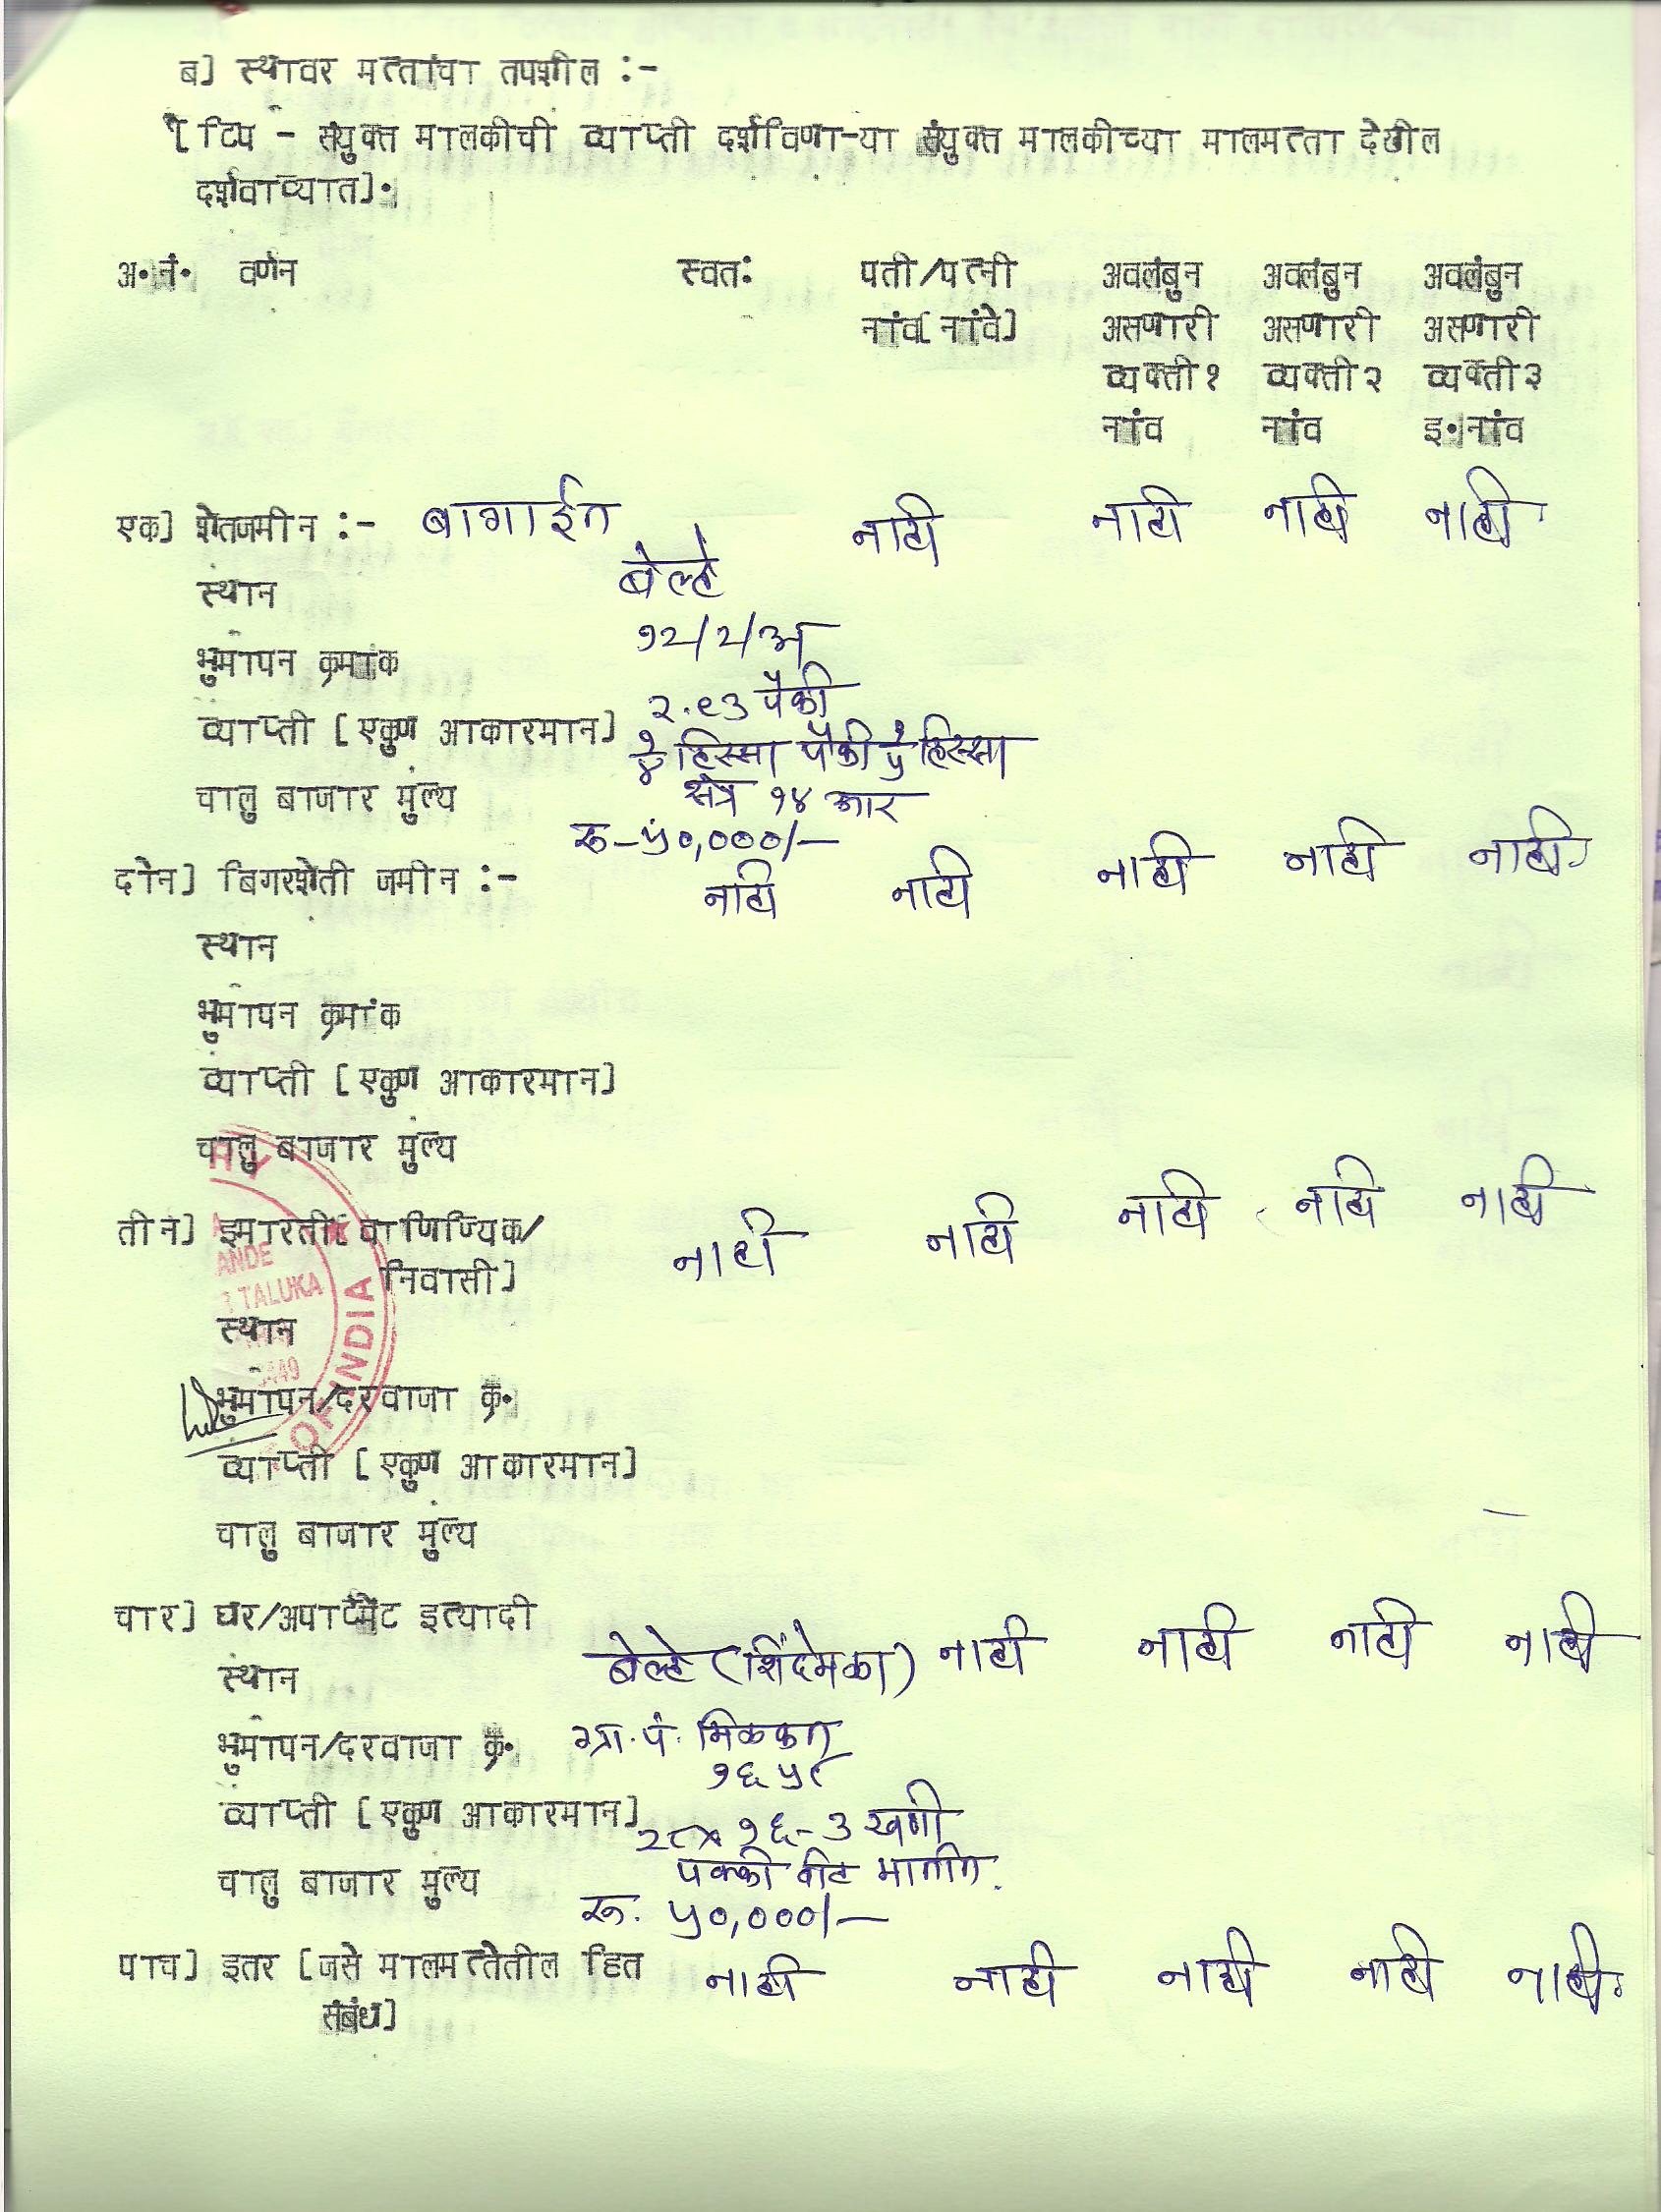 ब] स्थावर मत्तांचा तपशील :-
[ टिप - संयुक्त मालकीची व्याप्ती दर्शविणा-या संयुक्त मालकीच्या मालमत्ता देखील
दर्शवाव्यात].
अ.नं. वर्णन स्वतः पती/पत्नी अवलंबुन अवलंबुन अवलंबुन
नांव[नांवे] असणारी असणारी असणारी
व्यक्ती१ व्यक्ती२ व्यक्ती३
नांव नांव इ.नांव
एक] शेतजमीन :- बागाईत नाही नाही नाही नाही
स्थान बेल्हे
भुमापन क्रमांक १२/२/अ
व्याप्ती [एकुण आकारमान] २.९३ पैकी
१/४ हिस्सा पैकी १/५ हिस्सा
चालु बाजार मुल्य क्षेत्र १४ आर
रू-५०,०००/-
दोन] बिगरशेती जमीन :- नाही नाही नाही नाही नाही
स्थान
भुमापन क्रमांक
व्याप्ती [एकुण आकारमान]
चालु बाजार मुल्य
तीन] इमारती[वाणिज्यिक/ नाही नाही नाही नाही नाही
ANDE
निवासी]
TALUKA
स्थान
OF INDIA
भुमापन/दरवाजा क्र.
व्याप्ती [एकुण आकारमान]
चालु बाजार मुल्य
चार] घर/अपार्टमेंट इत्यादी
स्थान बेल्हे (शिंदेमळा) नाही नाही नाही नाही
भुमापन/दरवाजा क्र. ग्रा.पं. मिळकत
१६५८
व्याप्ती [एकुण आकारमान] २८x१६-३ खणी
चालु बाजार मुल्य पक्की वीट मातीत.
रू. ५०,०००/-
पाच] इतर [जसे मालमत्तेतील हित नाही नाही नाही नाही नाही
संबंध]